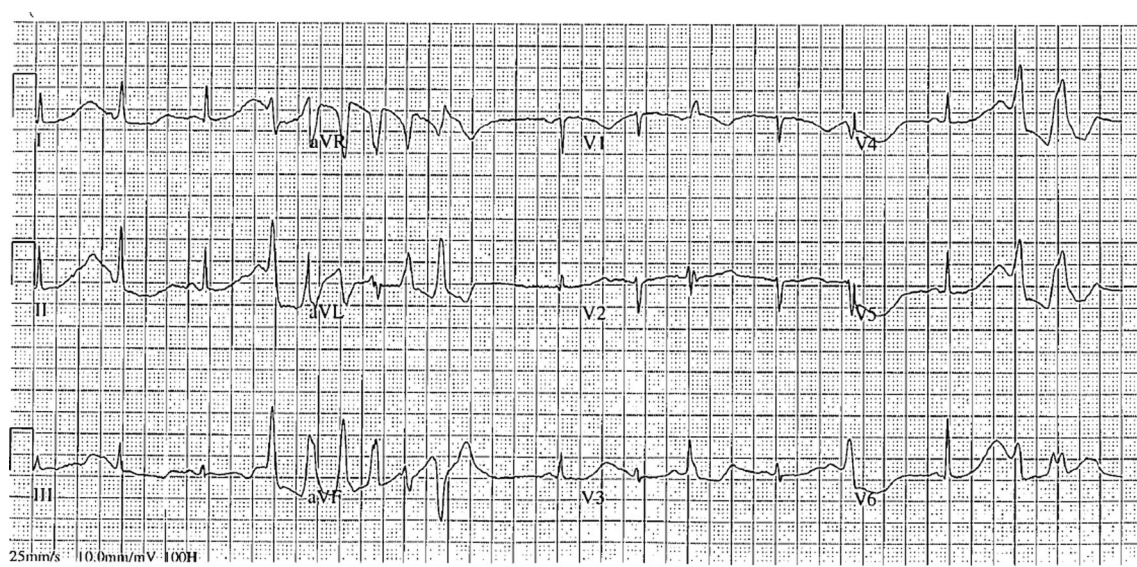 I aVR V1 V4
II aVL V2 V5
III aVF V3 V6
25mm/s 10.0mm/mV 100H